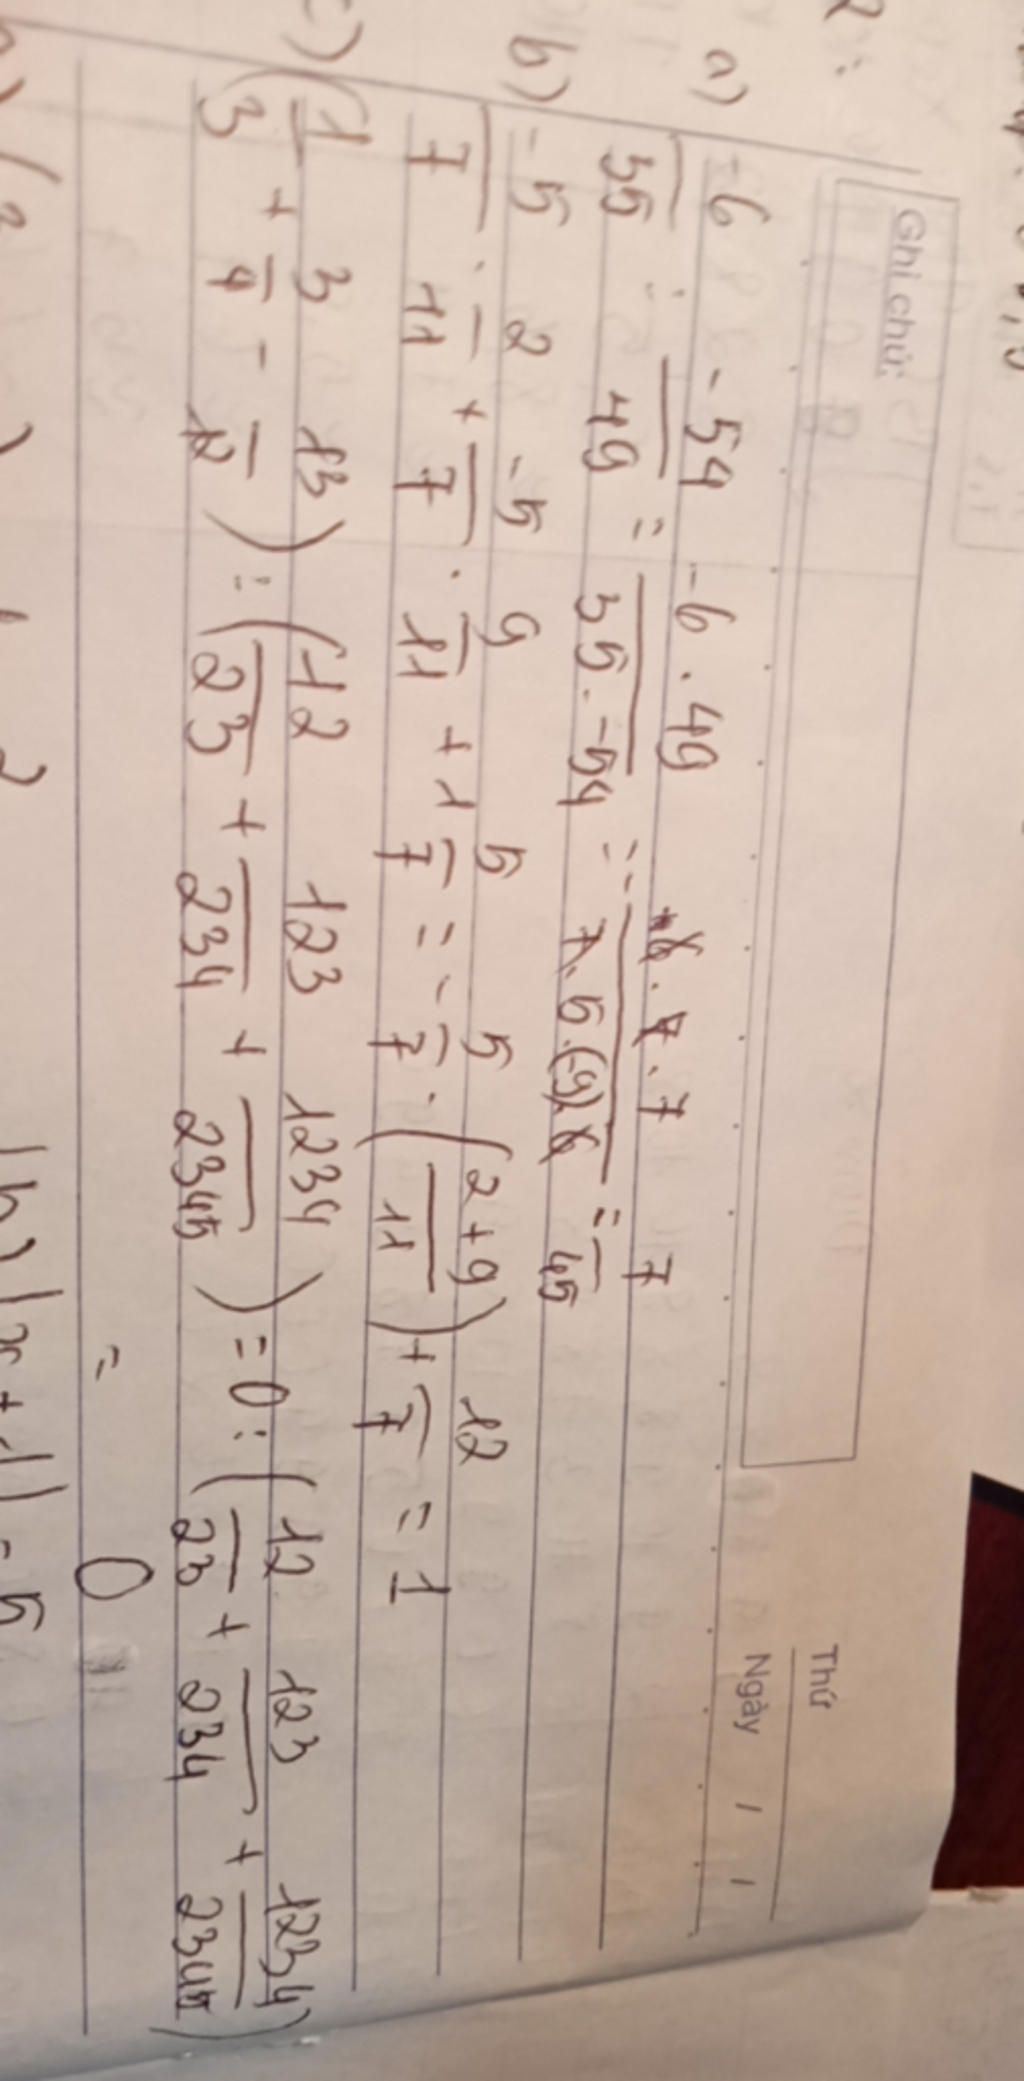 Ghi chú:
Thứ
Ngày / /
2:
a) -6/35 : -54/49 = -6.49/35.-54 = - -6.7.7/7.5.(-9).6 = 7/45
b) -5/7 . 2/11 + -5/7 . 9/11 + 1 5/7 = - 5/7 . (2+9/11) + 12/7 = 1
c) (1/3 + 3/4 - 13/12) : (12/23 + 123/234 + 1234/2345) = 0 : (12/23 + 123/234 + 1234/2345)
= 0
b) |x + 1| = 5